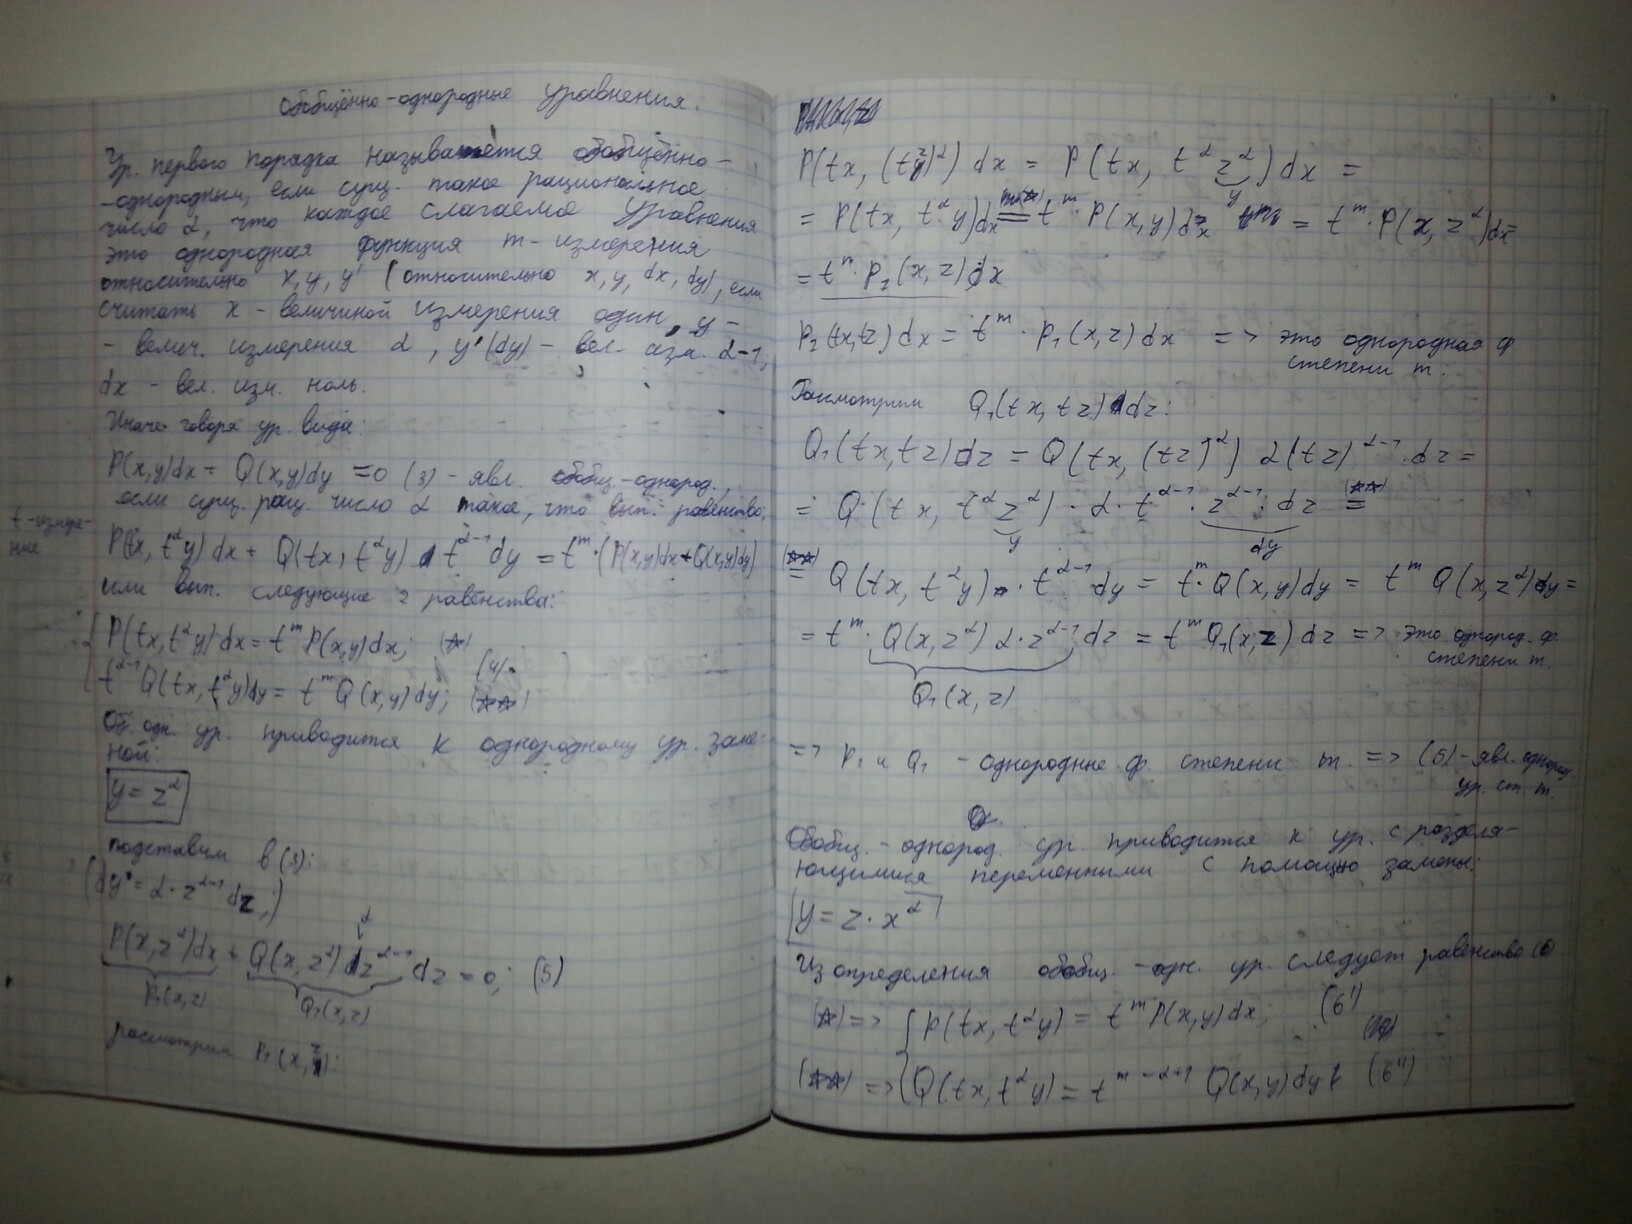 Обобщённо-однородные уравнения.
Ур. первого порядка называется обобщённо-
-однородным, если сущ. такое рациональное
число α, что каждое слагаемое уравнения
это однородная функция m-измерения
относительно x, y, y' (относительно x, y, dx, dy), если
считать x - величиной измерения один, y -
- велич. измерения α, y' (dy) - вел. изм. α-1,
dx - вел. изм. ноль.
Иначе говоря ур. вида:
P(x,y)dx + Q(x,y)dy = 0 (3) - явл. обобщ.-однород.,
если сущ. рац. число α такое, что вып. равенство:
t-измере-
ние
P(tx, t^α y) dx + Q(tx, t^α y) t^{α-1} dy = t^m · (P(x,y)dx + Q(x,y)dy)
или вып. следующие 2 равенства:
{ P(tx, t^α y) dx = t^m P(x,y)dx; (☆)
t^{α-1} Q(tx, t^α y)dy = t^m Q(x,y)dy; (☆☆) (4).
Об. одн. ур. приводится к однородному ур. заме-
ной:
y = z^α
подставим в (3):
(dy = α · z^{α-1} dz,)
P(x, z^α)dx + Q(x, z^α) α z^{α-1} dz = 0; (5)
P₁(x,z) Q₁(x,z)
рассмотрим P₁(x, z):
P(tx, (tz)^α) dx = P(tx, t^α z^α) dx =
y
= P(tx, t^α y)dx = t^m · P(x,y)dx = t^m · P(x, z^α)dx =
= t^m · P₁(x,z) dx
P₁(tx,tz) dx = t^m · P₁(x,z) dx => это однородная ф
степени m.
Рассмотрим Q₁(tx, tz) dz:
Q₁(tx,tz)dz = Q(tx, (tz)^α) α(tz)^{α-1} · dz =
= Q(tx, t^α z^α) · α · t^{α-1} · z^{α-1} · dz (☆☆) =
y dy
(☆☆) = Q(tx, t^α y) · t^{α-1} dy = t^m · Q(x,y)dy = t^m Q(x, z^α)dy =
= t^m · Q(x, z^α) α · z^{α-1} dz = t^m Q₁(x,z) dz => это однород. ф.
степени m.
Q₁(x, z)
=> P₁ и Q₁ - однородные ф. степени m. => (5) - явл. однород
ур. ст. m.
Обобщ.-однород. ур. приводится к ур. с разделя-
ющимися переменными с помощью замены:
y = z · x^α
Из определения обобщ.-одн. ур. следует равенство (6
(☆) => { P(tx, t^α y) = t^m P(x,y)dx; (6')
(☆☆) => { Q(tx, t^α y) = t^{m-α+1} Q(x,y)dy (6'')